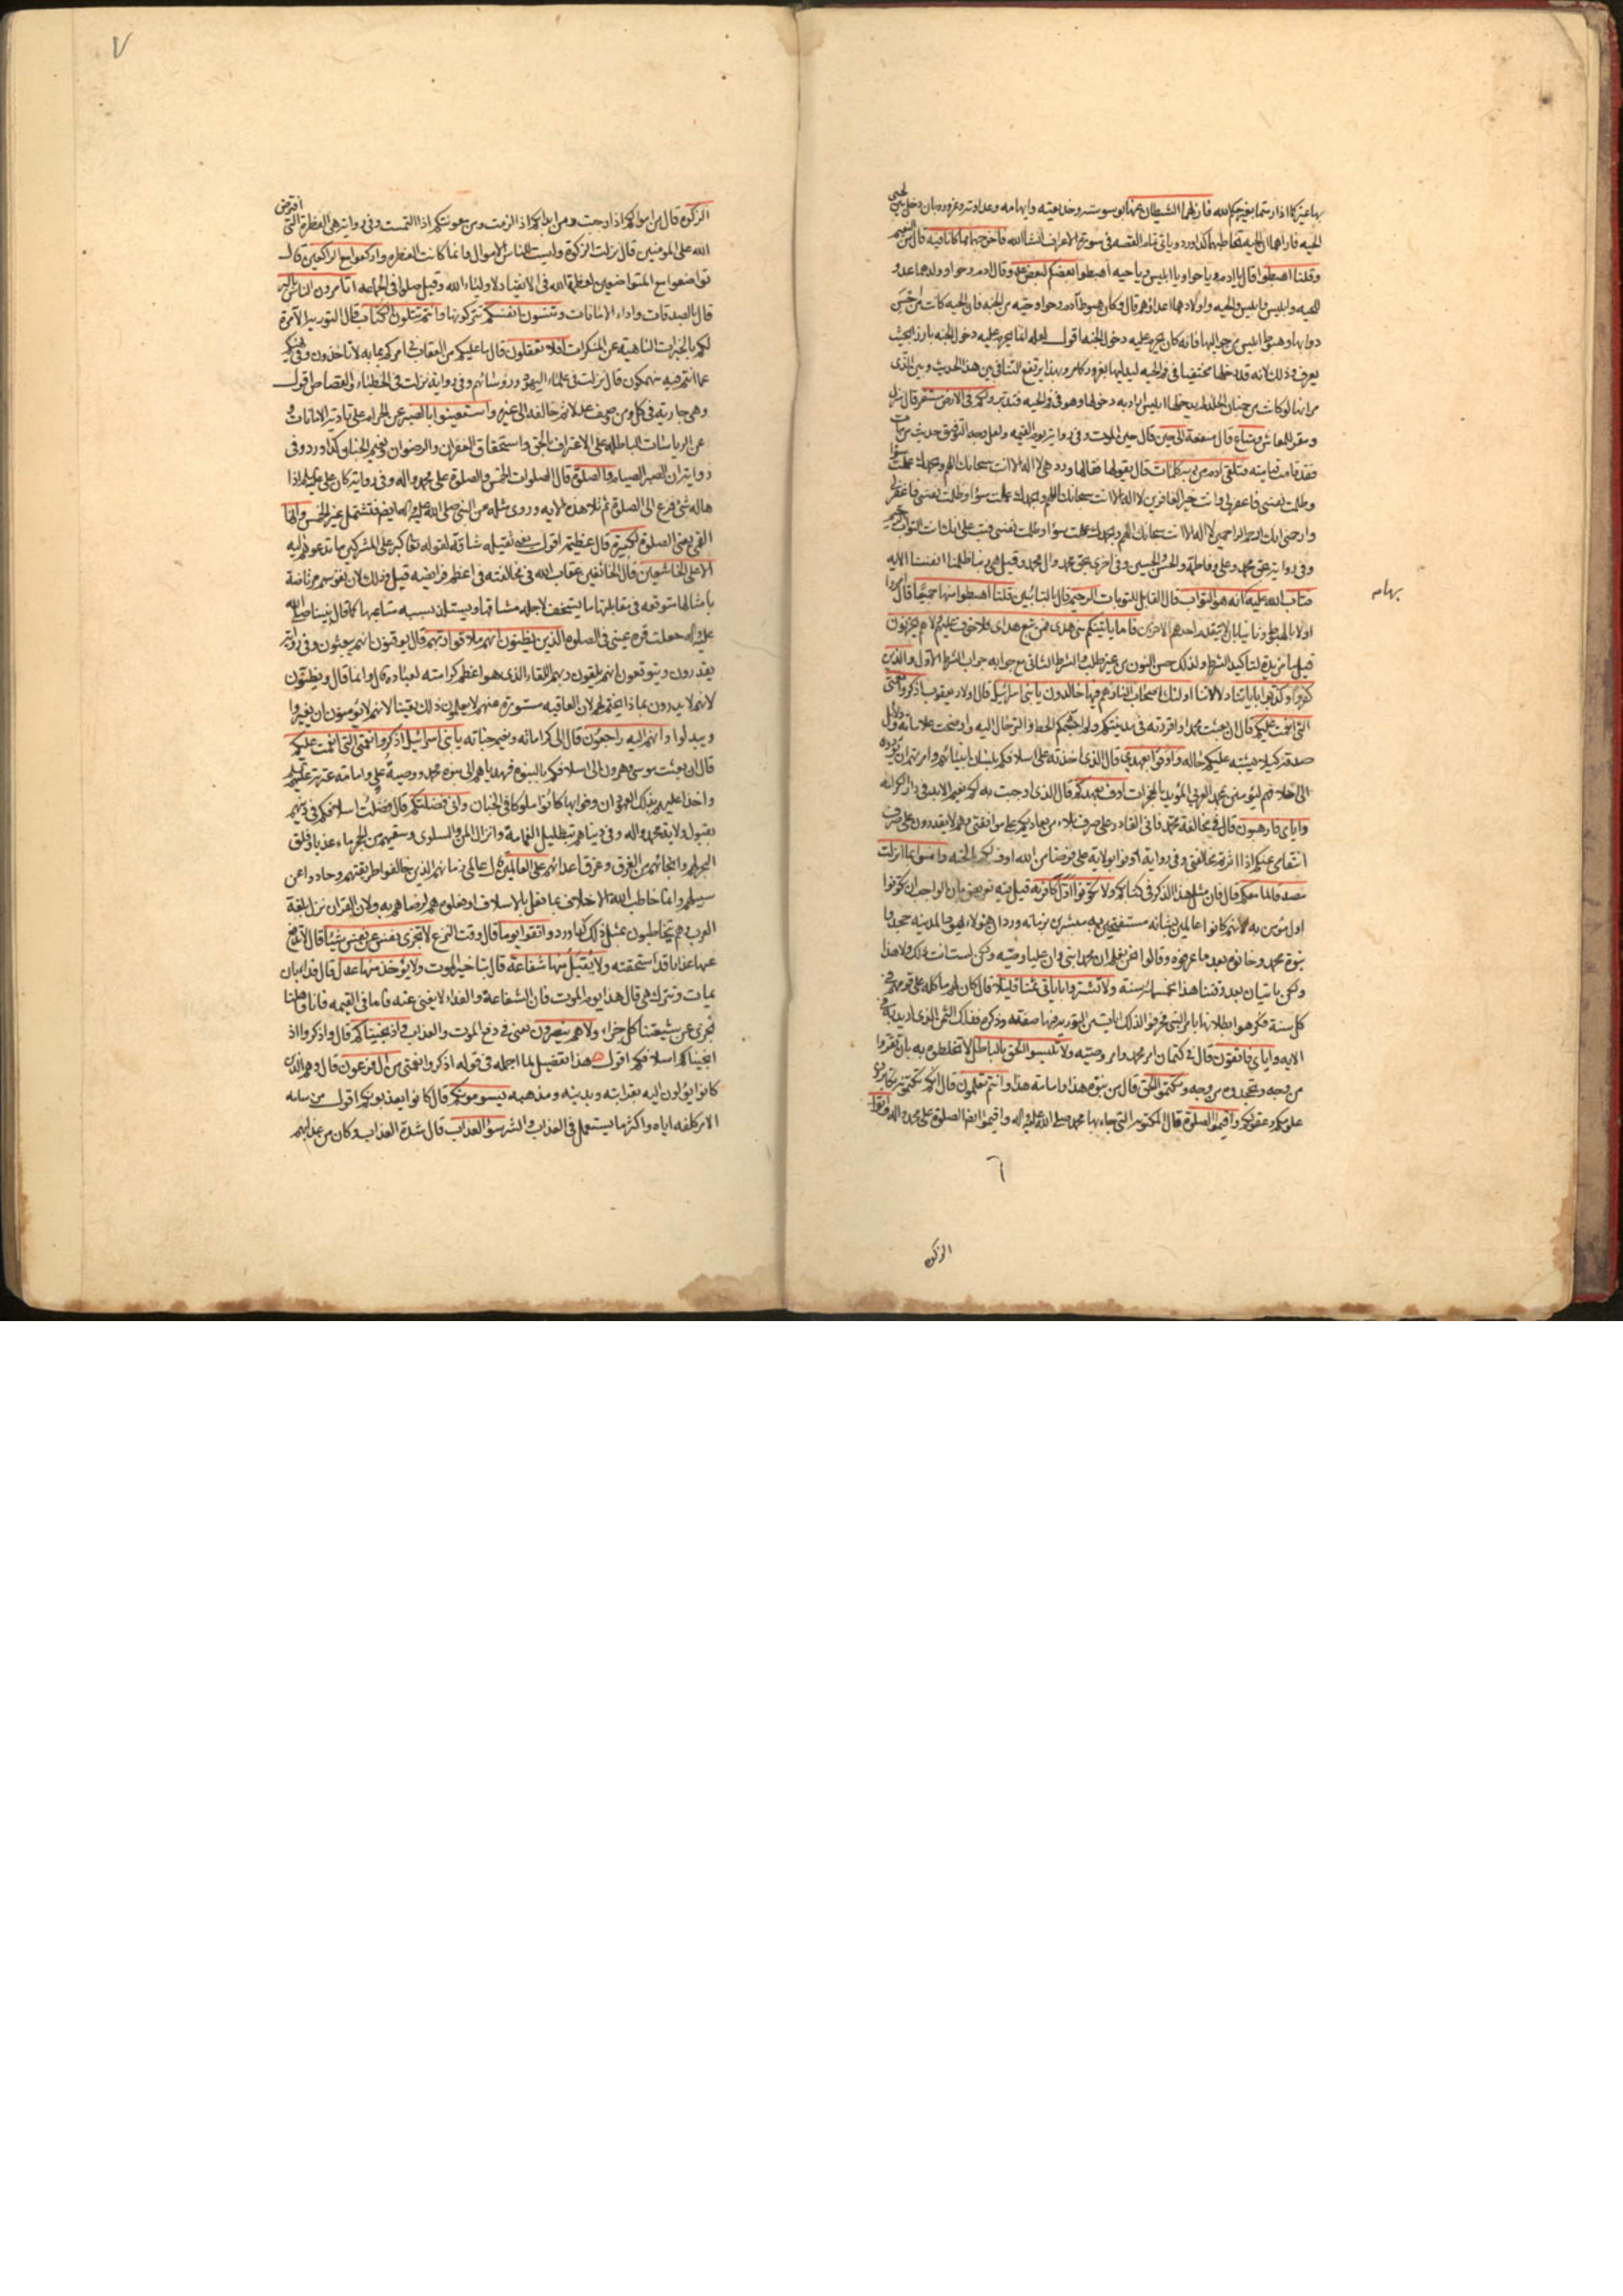 بها عيركما اذا رمتما بغير حكم الله فازلهما الشيطان عنها بوسوسته وخديعته وايهامه وعداوته وغروره بان دخل بين لحيي
الحيه فاراهما ان الحيه تخاطبهما كذا ورد وياتي تمام القصه في سورة الاعراف انشاالله فاخرجهما مما كانا فيه قال من النعيم
وقلنا اهبطوا قال يا ادم ويا حوا ويا ابليس ويا حيه اهبطوا بعضكم لبعض عدو قال ادم وحوا وولدهما عدو
للحيه وابليس وابليس والحيه واولادهما اعداؤهم قال وكان هبوط آدم وحوا وحيه من الجنه فان الحيه كانت من احسن
دوابها وهبوط ابليس من حواليها فانه كان يحرم عليه دخول الجنه اقول لعله انما يحرم عليه دخول الجنه بارزا بحيث
يعرف وذلك لانه قد دخلها مختفيا في فم الحيه ليدليهما بغرور كما مر وبهذا يرتفع التنافي بين هذا الحديث وبين الذي
مر انها لو كانت من جنان الخلد لم يدخلها ابليس اراد به دخولها وهو في فم الحيه فتدبر ولكم في الارض مستقر قال منزل
ومقر للمعاش ومتاع قال منفعة الى حين قال حين الموت وفي رواية يوم القيمه ولعل وجه التوفيق حديث من مات
فقد قامت قيامته فتلقى آدم من ربه كلمات قال يقولها فقالها وورد هي لا اله الا انت سبحانك اللهم وبحمدك عملت سوءا
وظلمت نفسي فاغفر لي وانت خير الغافرين لا اله الا انت سبحانك اللهم وبحمدك عملت سوءا وظلمت نفسي فاغفر لي
وارحمني انك انت ارحم الراحمين لا اله الا انت سبحانك اللهم وبحمدك عملت سوءا وظلمت نفسي فتب علي انك انت التواب الرحيم
وفي رواية بحق محمد وعلي وفاطمة والحسن والحسين وفي اخرى بحق محمد وال محمد وقيل هي ربنا ظلمنا انفسنا الايه
فتاب الله عليه انه هو التواب قال القابل للتوبات الرحيم قال بالتائبين قلنا اهبطوا منها جميعا قال امروا
اولا بالهبوط وثانيا بان لا يتقدم احدهم الاخرين فاما ياتينكم مني هدى فمن تبع هداي فلا خوف عليهم ولا هم يحزنون
قيل ما مزيدة لتاكيد الشرط ولذلك حسن النون من غير طلب والشرط الثاني مع جوابه جواب الشرط الاول والذين
كفروا وكذبوا باياتنا دلالاتنا اولئك اصحاب النار هم فيها خالدون يا بني اسرائيل قال اولاد يعقوب اذكروا نعمتي
التي انعمت عليكم قال ان بعثت محمدا واقررته في مدينتكم ولم اجشمكم الحط والترحال اليه واوضحت علاماته ودلايل
صدقه كيلا يشتبه عليكم حاله واوفوا بعهدي قال الذي اخذته على اسلافكم بلسان انبيائهم وامرتهم ان يؤدوه
الى اخلافهم ليؤمنن بمحمد العربي المؤيد بالمعجزات اوف بعهدكم قال الذي اوجبت به لكم نعيم الابد في دار الكرامه
واياي فارهبون قال في مخالفة محمد فاني القادر على صرف بلاء من يعاديكم على موافقتي وهم لا يقدرون على صرف
انتقامي عنكم اذا اثرتم مخالفتي وفي رواية اوفوا بولاية علي فرضا من الله اوف لكم بالجنه وامنوا بما انزلت
مصدقا لما معكم قال فان مثل هذا الذكر في كتابكم ولا تكونوا اول كافر به قيل فيه تعريض بان الواجب ان تكونوا
اول مؤمن به لانهم كانوا عالمين بشانه مستفتحين به مبشرين بزمانه وورد ان هؤلاء يهود المدينه جحدوا
نبوة محمد وخانوه بعد ما عرفوه وقالوا نحن نعلم ان محمدا نبي وان عليا وصيه ولكن لست انت ذلك ولا هذا
ولكن ياتيان بعد وقتنا هذا بخمسمائة سنة ولا تشتروا باياتي ثمنا قليلا قال كان لهم ماكلة على قومهم في
كل سنة فكرهوا بطلانها بامر النبي فحرفوا لذلك ايات من التوريه فيها صفته وذكره فذلك الثمن الذي اريد به في
الايه واياي فاتقون قال في كتمان امر محمد وامر وصيه ولا تلبسوا الحق بالباطل لا تخلطوه به بان تقروا
من وجه وتجحدوه من وجه وتكتموا الحق قال من نبوة هذا وامامة هذا وانتم تعلمون قال انكم تكتمونه تكابرون
علومكم وعقولكم واقيموا الصلوة قال المكتوبه التي جاء بها محمد صلى الله عليه واله واقيموا ايضا الصلوة على محمد واله واتوا
بهامه
٦
الزكوة
٧
الزكوة قال من اموالكم اذا وجبت ومن ابدانكم اذا لزمت ومن معونتكم اذا التمست وفي رواية هي الفطرة التي افترض
الله على المؤمنين قال نزلت الزكوة وليست للناس الاموال وانما كانت الفطره واركعوا مع الراكعين قال
تواضعوا مع المتواضعين لعظمة الله في الانقياد لاولياء الله وقيل صلوا في الجماعه اتامرون الناس بالبر
قال بالصدقات واداء الامانات وتنسون انفسكم تتركونها وانتم تتلون الكتاب قال التوريه الآمرة
لكم بالخيرات الناهيه عن المنكرات افلا تعقلون قال ما عليكم من العقاب في امركم بما به لا تاخذون وفي نهيكم
عما انتم فيه منهمكون قال نزلت في علماء اليهود ورؤسائهم وفي رواية نزلت في الخطباء والقصاص اقول
وهي جارية في كل من وصف عدلا ثم خالفه الى غيره واستعينوا بالصبر عن الحرام على تادية الامانات و
عن الرياسات الباطله على الاعتراف بالحق واستحقاق الغفران والرضوان ونعيم الجنان كذا ورد وفي
رواية ان الصبر الصيام والصلوة قال الصلوات الخمس والصلوة على محمد واله وفي رواية كان علي عليه السلم اذا
هاله شئ فزع الى الصلوة ثم تلا هذه الايه وروي مثله عن النبي صلى الله عليه واله ايضا فتشتمل غير الخمس وانها
القمي يعني الصلوة لكبيرة قال عظيمة اقول يعني لثقيله شاقة لقوله تعالى كبر على المشركين ما تدعوهم اليه
الا على الخاشعين قال الخائفين عقاب الله في مخالفته في اعظم فرايضه قيل وذلك لان نفوسهم مرتاضة
بامثالها متوقعه في مقابلتها ما يستخف لاجله مشاقها ويستلذ بسببه متاعبها كما قال نبينا صلى الله
عليه واله جعلت قرة عيني في الصلوة الذين يظنون انهم ملاقوا ربهم قال يوقنون انهم يبعثون وفي رواية
يقدرون ويتوقعون انهم يلقون ربهم اللقاء الذي هو اعظم كرامته لعباده قال وانما قال يظنون
لانهم لا يدرون بما ذا يختم لهم لان العاقبه مستورة عنهم لا يعلمون ذلك يقينا لانهم لا يؤمنون ان يغيروا
ويبدلوا وانهم اليه راجعون قال الى كراماته ونعيم جناته يا بني اسرائيل اذكروا نعمتي التي انعمت عليكم
قال ان بعثت موسى وهرون الى اسلافكم بالنبوة فهدياهم الى نبوة محمد ووصية علي وامامة عترته عليهم السلم
واخذا عليهم بذلك العهود ان وفوا بها كانوا ملوكا في الجنان واني فضلتكم قال فضلت اسلافكم في دينهم
بقبول ولاية محمد واله وفي دنياهم بتظليل الغمامة وانزال المن والسلوى وسقيهم من الحجر ماء عذبا وفلق
البحر لهم وانجائهم من الغرق وغرق اعدائهم على العالمين قال عالمي زمانهم الذين خالفوا طريقتهم وحادوا عن
سبيلهم وانما خاطب الله الاخلاف بما فعل بالاسلاف او فعلوه هم لرضاهم به ولان القران نزل بلغة
العرب وهم يتخاطبون بمثل ذلك كما ورد واتقوا يوما قال وقت النزع لا تجزي نفس عن نفس شيئا قال لا تدفع
عنها عذابا قد استحقته ولا يقبل منها شفاعة قال بتاخير الموت ولا يؤخذ منها عدل قال فداء بان
يمات وتترك هي قال هذا يوم الموت فان الشفاعة والفداء لا يغني عنه فاما في القيمه فانا واهلنا
نجزي عن شيعتنا كل جزاء ولا هم ينصرون يعني في دفع الموت والعذاب واذ نجيناكم قال واذكروا اذ
انجينا اسلافكم اقول هذا تفصيل لما اجمله في قوله اذكروا نعمتي من ال فرعون قال وهم الذين
كانوا يؤلون اليه بقرابته وبدينه ومذهبه يسومونكم قال كانوا يعذبونكم اقول من سامه
الامر كلفه اياه واكثر ما يستعمل في العذاب والشر سوء العذاب قال شدة العذاب وكان من عذابهم